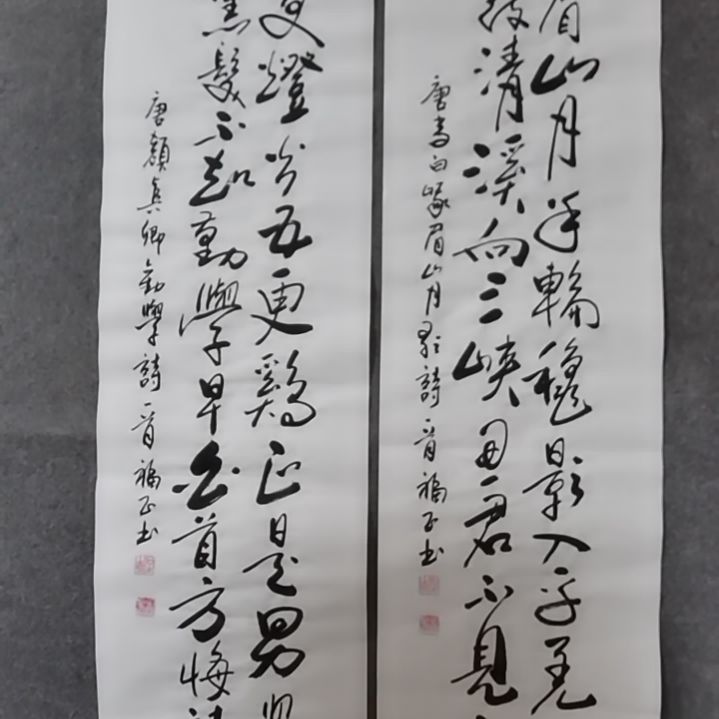 眉山月半輪穐影入平羌
發清溪向三峽思君不見
唐李白峨眉山月歌詩一首福正书
更燈火五更鷄正是男
黑髮不知勤學早白首方悔
唐顏真卿勸學詩一首福正书